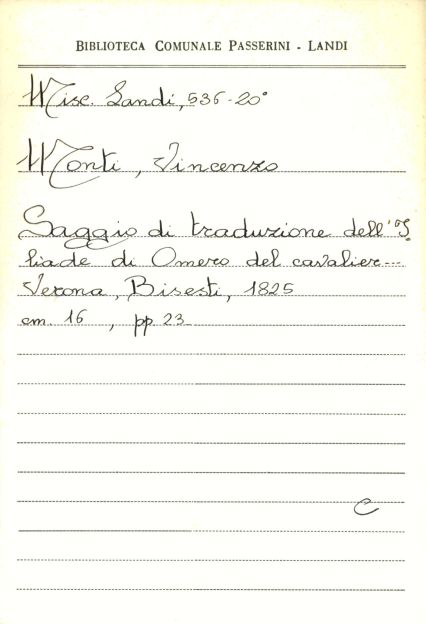 BIBLIOTECA COMUNALE PASSERINI - LANDI
Misc. Landi, 536-20°
Monti, Vincenzo
Saggio di traduzione dell'I
liade di Omero del cavalier---
Verona, Bisesti, 1825
cm. 16 , pp. 23
C